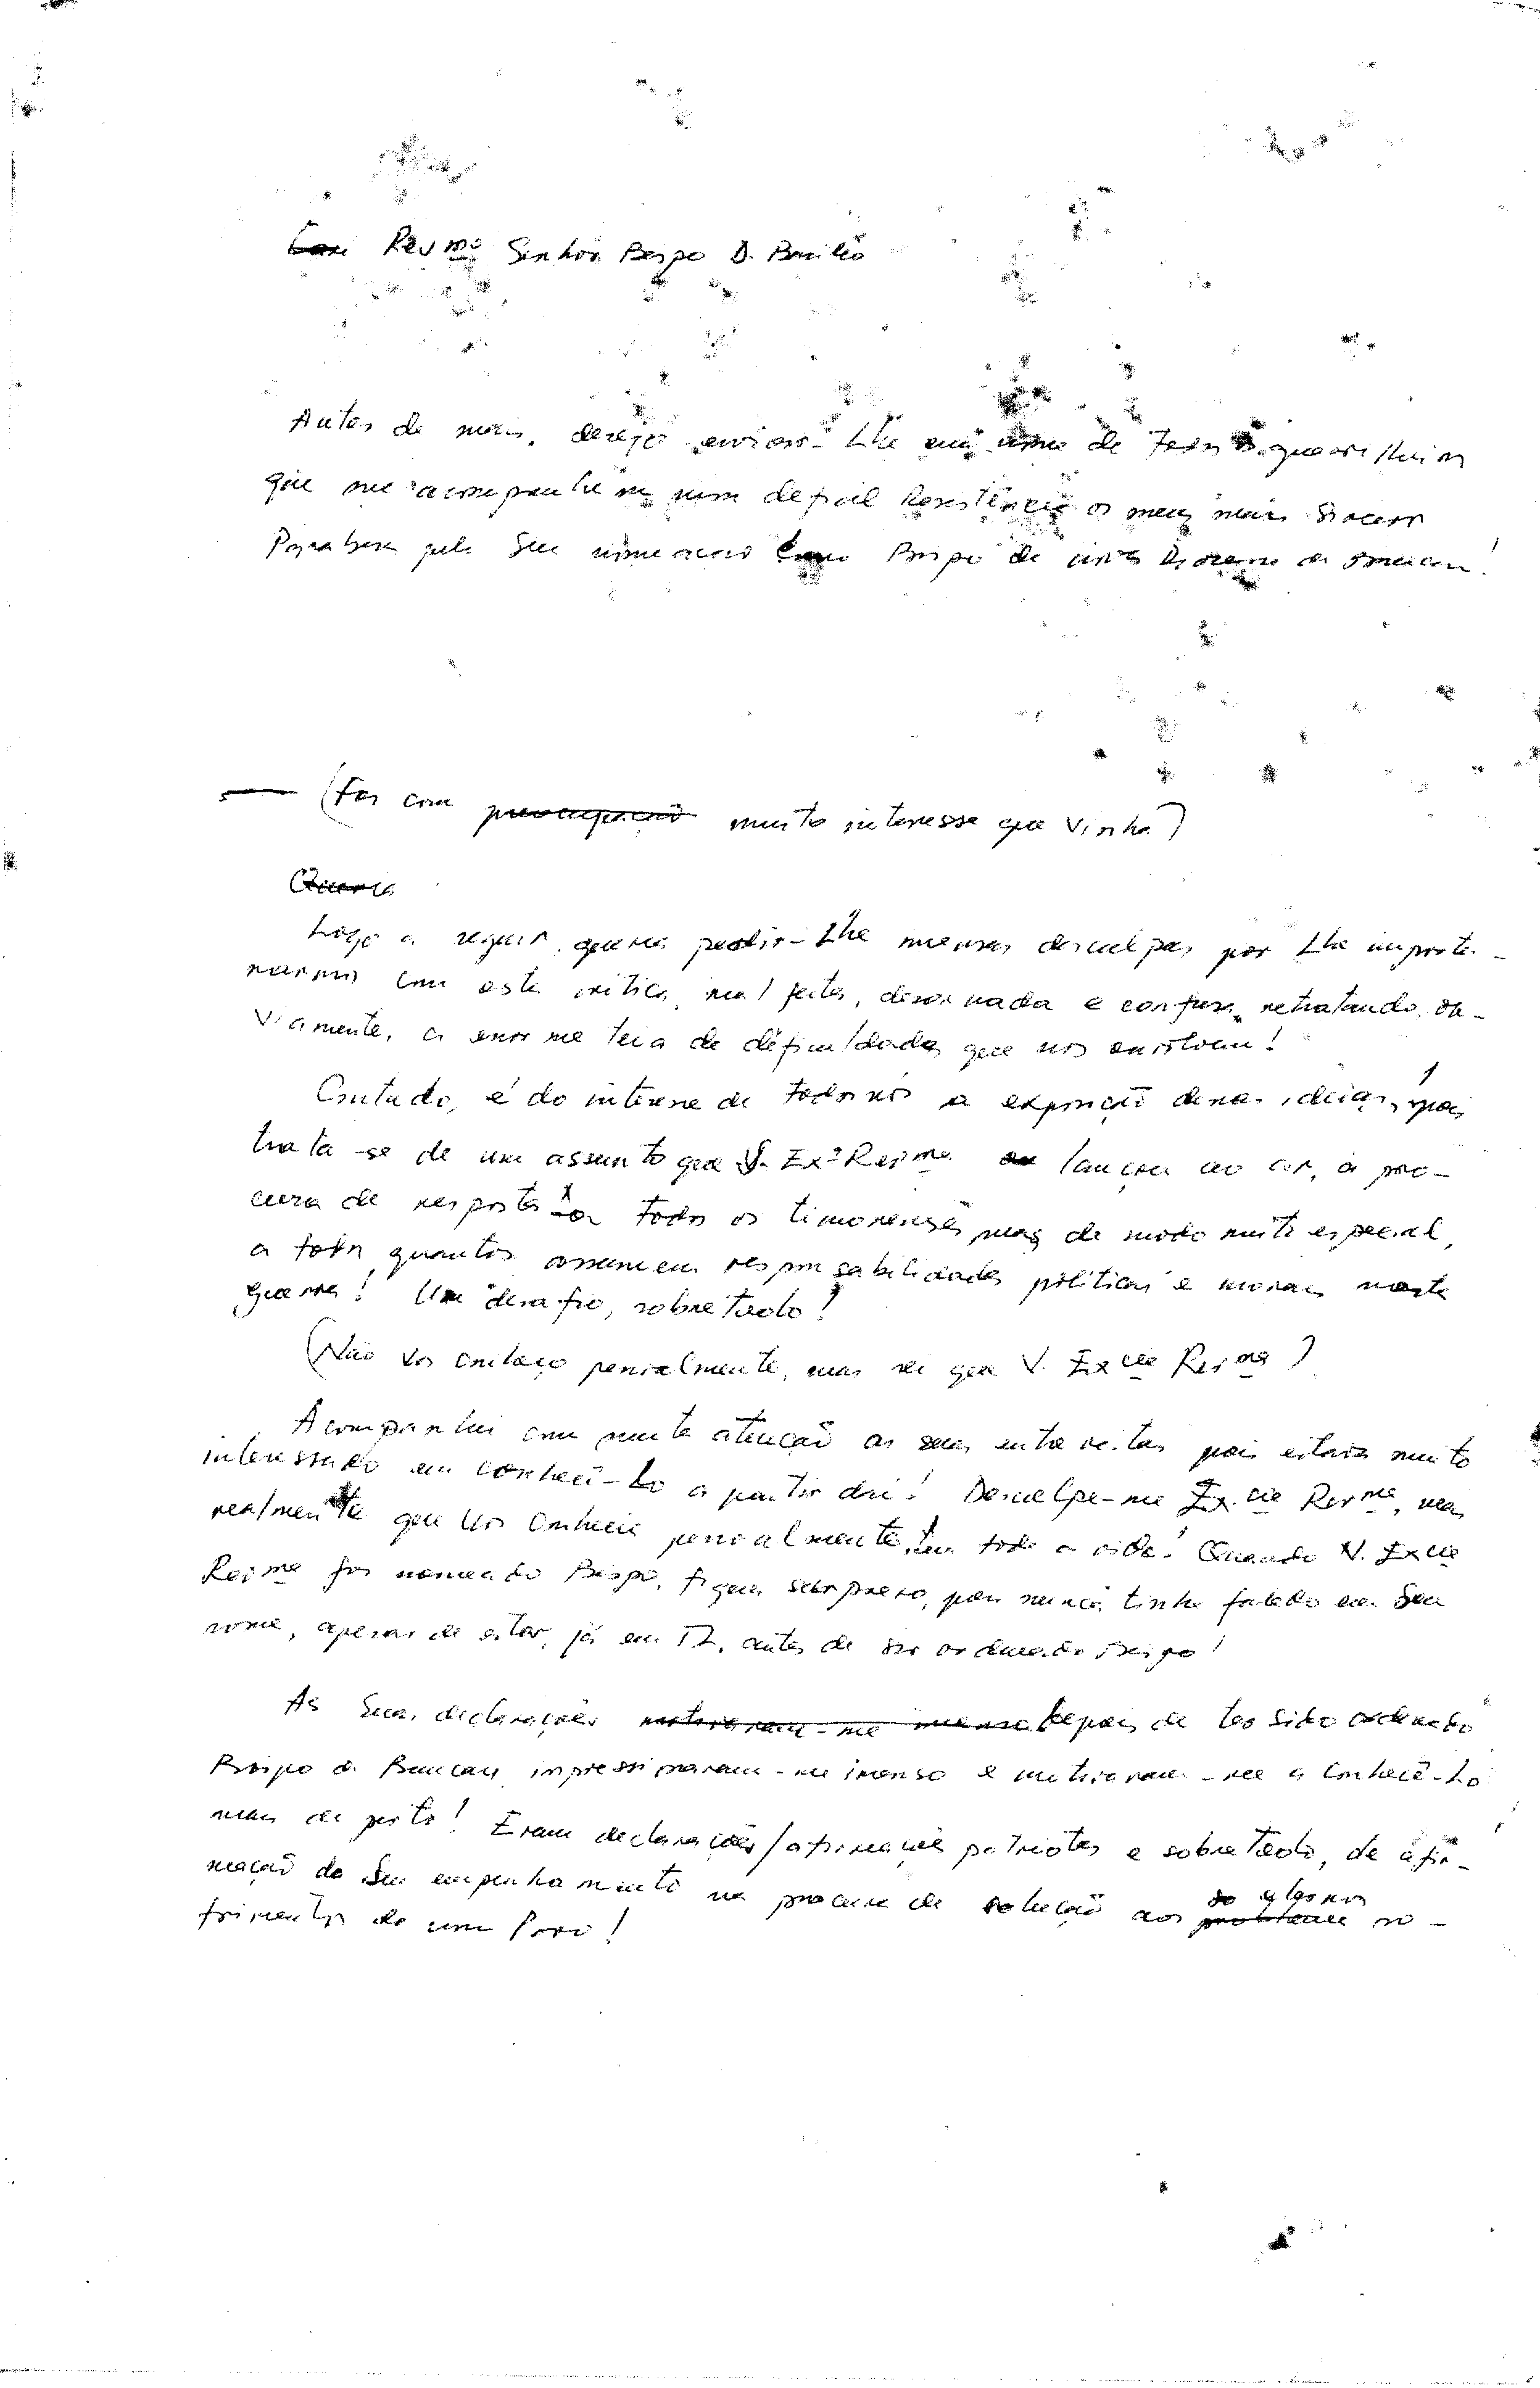 Revmo Senhor Bispo D. Basílio
Antes de mais, desejo enviar-Lhe em nome de todos os guerrilheiros
que me acompanham nesta difícil Resistência os meus mais sinceros
Parabens pela Sua nomeação como Bispo de
(Foi com preocupação muito interesse que vinha)
Queria
Logo a seguir, queria pedir-Lhe imensas desculpas por Lhe importu-
narmos com esta crítica mal feita, desordenada e confusa, retratando, ob-
viamente, a enorme teia de dificuldades que nos envolvem!
Contudo, é do interesse de todos nós a exposição dessas ideias, pois
trata-se de um assunto que V. Exa Revma lançou ao ar, à pro-
cura de resposta a todos os timorenses, mas de modo muito especial,
a todos quantos assumem responsabilidades políticas e morais nesta
guerra! Um desafio, sobretudo!
(Não Vos conheço pessoalmente, mas sei que V. Excia Revma)
Acompanhei com muita atenção as suas entrevistas pois estava muito
interessado em conhecê-Lo a partir daí! Desculpe-me Ex.cia Revma, mas
realmente que Vos conheci pessoalmente, em toda a vida! Quando V. Excia
Revma foi nomeado Bispo, fiquei surpreso, pois nunca tinha falado em Seu
nome, apesar de estar, já em T.L. antes de ser ordenado Bispo!
As Suas declarações motivaram-me imenso depois de ter sido ordenado
Bispo de Baucau, impressionaram-me imenso e motivaram-me a conhecê-Lo
mais de perto! Eram declarações/afirmações patriotas e sobretudo, de afir-
mação do Seu empenhamento na procura de solução aos problemas so-
frimentos do nosso Povo!